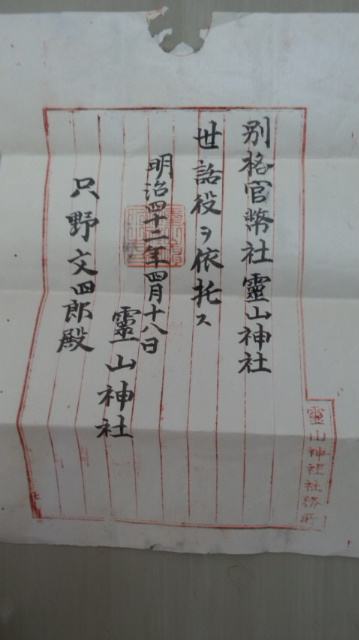 別格官幣社靈山神社
世話役ヲ依托ス
明治四十二年四月十八日
靈山神社
只野文四郎殿
靈山神社社務所